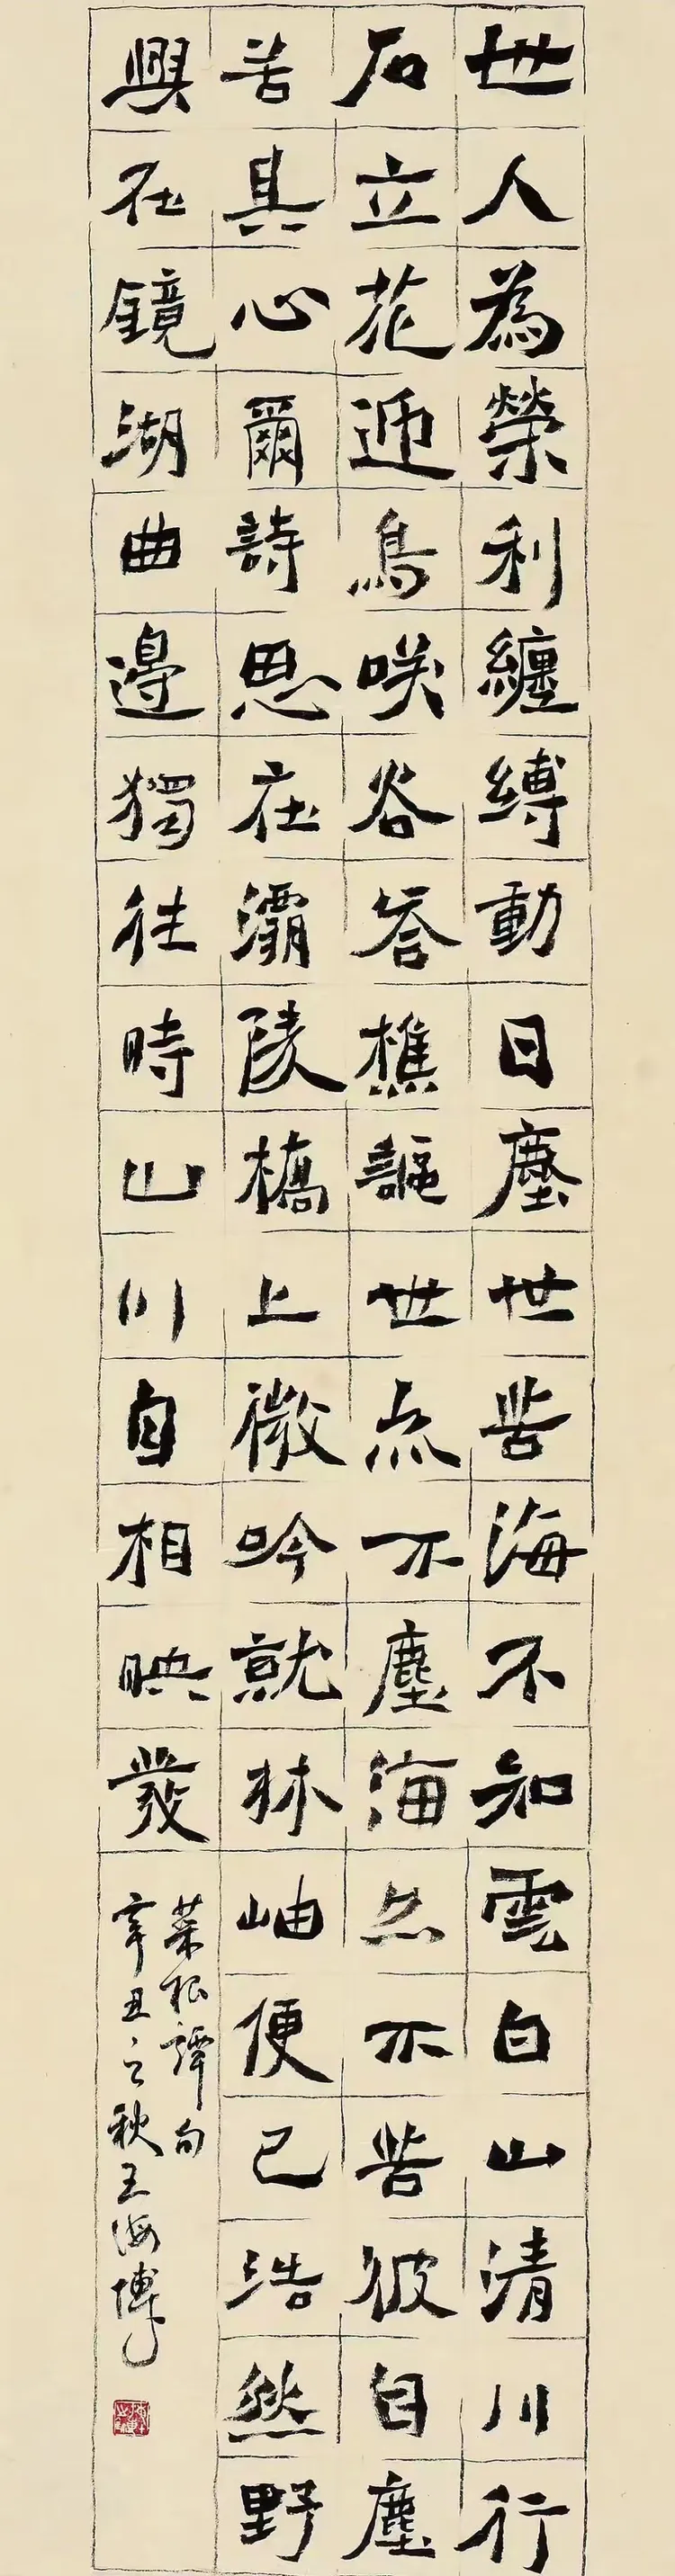 世人為榮利纏縛動曰塵世苦海不知雲白山清川行
石立花迎鳥咲谷答樵謳世亦不塵海亦不苦彼自塵
苦其心爾詩思在灞陵橋上微吟就林岫便已浩然野
興在鏡湖曲邊獨往時山川自相映發
菜根譚句
辛丑之秋王海博